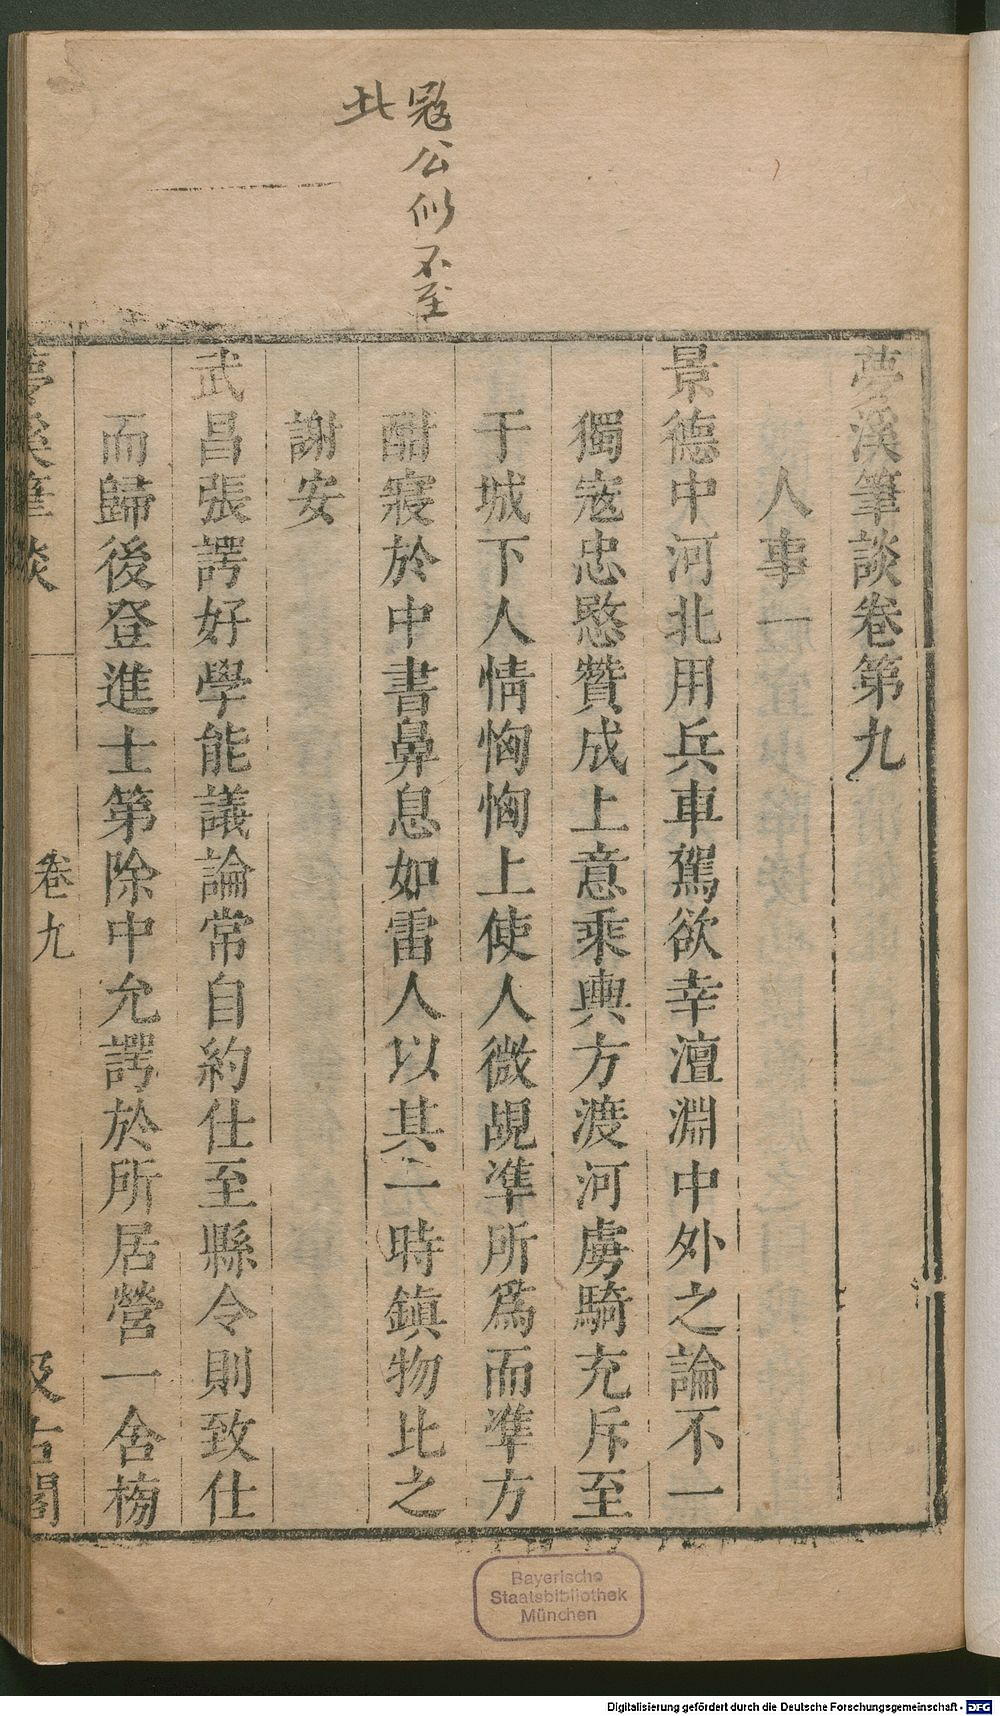 寇公似不至
此
夢溪筆談卷第九
人事一
景德中河北用兵車駕欲幸澶淵中外之論不一
獨寇忠愍贊成上意乘輿方渡河虜騎充斥至
于城下人情恟恟上使人微覘準所爲而準方
酣寢於中書鼻息如雷人以其一時鎮物比之
謝安
武昌張諤好學能議論常自約仕至縣令則致仕
而歸後登進士第除中允諤於所居營一舍榜
夢溪筆談
卷九
汲古閣
Bayerische
Staatsbibliothek
München
Digitalisierung gefördert durch die Deutsche Forschungsgemeinschaft - DFG